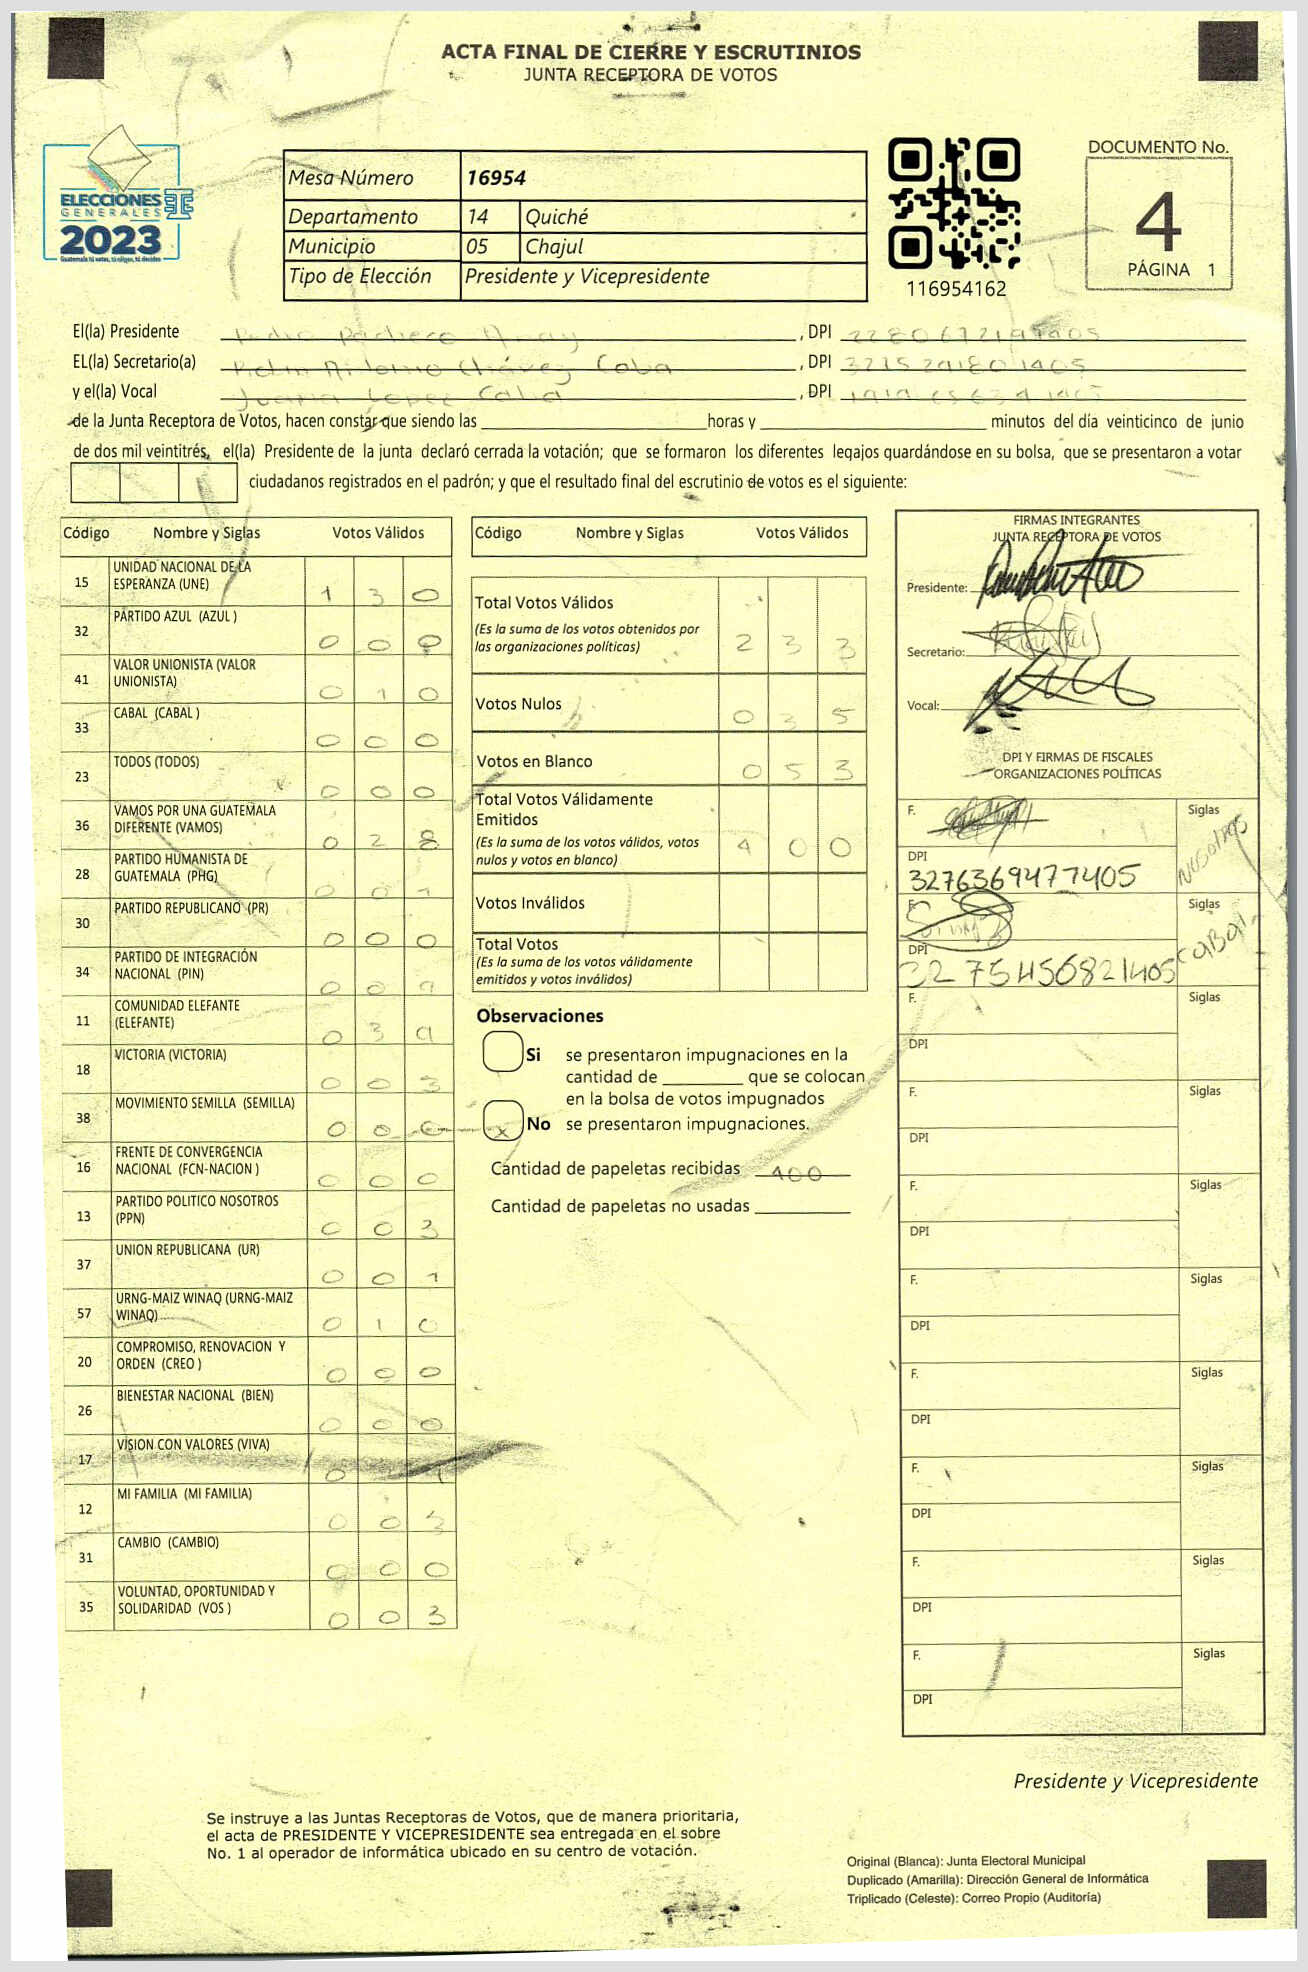 ACTA FINAL DE CIERRE Y ESCRUTINIOS
JUNTA RECEPTORA DE VOTOS
ELECCIONES
GENERALES
2023
Guatemala tú votas, tú eliges, tú decides
Mesa Número 16954
Departamento 14 Quiché
Municipio 05 Chajul
Tipo de Elección Presidente y Vicepresidente
116954162
DOCUMENTO No.
4
PÁGINA 1
El(la) Presidente Pedro Pacheco , DPI
EL(la) Secretario(a) Pedro Antonio Chávez Caba , DPI 3215291801405
y el(la) Vocal Juana López Caba , DPI
de la Junta Receptora de Votos, hacen constar que siendo las ____ horas y ____ minutos del día veinticinco de junio
de dos mil veintitrés, el(la) Presidente de la junta declaró cerrada la votación; que se formaron los diferentes legajos guardándose en su bolsa, que se presentaron a votar
ciudadanos registrados en el padrón; y que el resultado final del escrutinio de votos es el siguiente:
Código Nombre y Siglas Votos Válidos
15 UNIDAD NACIONAL DE LA ESPERANZA (UNE) 1 3 0
32 PARTIDO AZUL (AZUL ) 0 0 0
41 VALOR UNIONISTA (VALOR UNIONISTA) 0 1 0
33 CABAL (CABAL ) 0 0 0
23 TODOS (TODOS) 0 0 0
36 VAMOS POR UNA GUATEMALA DIFERENTE (VAMOS) 0 2 8
28 PARTIDO HUMANISTA DE GUATEMALA (PHG) 0 0 1
30 PARTIDO REPUBLICANO (PR) 0 0 0
34 PARTIDO DE INTEGRACIÓN NACIONAL (PIN) 0 0
11 COMUNIDAD ELEFANTE (ELEFANTE) 0 3 9
18 VICTORIA (VICTORIA) 0 0 3
38 MOVIMIENTO SEMILLA (SEMILLA) 0 0 0
16 FRENTE DE CONVERGENCIA NACIONAL (FCN-NACION ) 0 0 0
13 PARTIDO POLITICO NOSOTROS (PPN) 0 0 3
37 UNION REPUBLICANA (UR) 0 0 1
57 URNG-MAIZ WINAQ (URNG-MAIZ WINAQ) 0 1 0
20 COMPROMISO, RENOVACION Y ORDEN (CREO ) 0 0 0
26 BIENESTAR NACIONAL (BIEN) 0 0 0
17 VISION CON VALORES (VIVA) 0 1
12 MI FAMILIA (MI FAMILIA) 0 0
31 CAMBIO (CAMBIO) 0 0 0
35 VOLUNTAD, OPORTUNIDAD Y SOLIDARIDAD (VOS ) 0 0 3
Código Nombre y Siglas Votos Válidos
Total Votos Válidos 2 3 3
(Es la suma de los votos obtenidos por
las organizaciones políticas)
Votos Nulos 0 3 5
Votos en Blanco 0 5 3
Total Votos Válidamente
Emitidos
(Es la suma de los votos válidos, votos
nulos y votos en blanco) 4 0 0
Votos Inválidos
Total Votos
(Es la suma de los votos válidamente
emitidos y votos inválidos)
Observaciones
Si se presentaron impugnaciones en la
cantidad de ________ que se colocan
en la bolsa de votos impugnados
x No se presentaron impugnaciones.
Cantidad de papeletas recibidas 400
Cantidad de papeletas no usadas
FIRMAS INTEGRANTES
JUNTA RECEPTORA DE VOTOS
Presidente:
Secretario:
Vocal:
DPI Y FIRMAS DE FISCALES
ORGANIZACIONES POLÍTICAS
F. Siglas Nosotros
DPI
3276369477405
F. Siglas CABAL
DPI
3275456821405
F. Siglas
DPI
F. Siglas
DPI
F. Siglas
DPI
F. Siglas
DPI
F. Siglas
DPI
F. Siglas
DPI
F. Siglas
DPI
F. Siglas
DPI
Presidente y Vicepresidente
Se instruye a las Juntas Receptoras de Votos, que de manera prioritaria,
el acta de PRESIDENTE Y VICEPRESIDENTE sea entregada en el sobre
No. 1 al operador de informática ubicado en su centro de votación.
Original (Blanca): Junta Electoral Municipal
Duplicado (Amarilla): Dirección General de Informática
Triplicado (Celeste): Correo Propio (Auditoría)